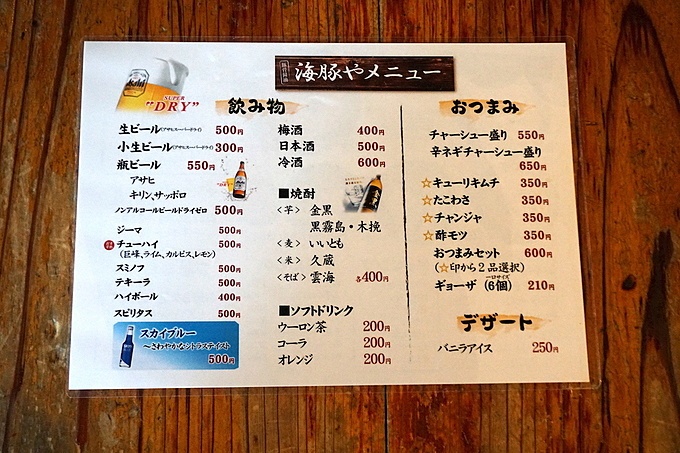 海豚やメニュー
Asahi
SUPER
"DRY"
飲み物
生ビール(アサヒスーパードライ) 500円
小生ビール(アサヒスーパードライ) 300円
瓶ビール 550円
アサヒ
キリン、サッポロ
ノンアルコールビールドライゼロ 500円
ジーマ 500円
チューハイ 500円
(巨峰、ライム、カルピス、レモン)
スミノフ 500円
テキーラ 500円
ハイボール 400円
スピリタス 500円
スカイブルー
〜さわやかなシトラステイスト
500円
梅酒 400円
日本酒 500円
冷酒 600円
■焼酎
<芋> 金黒
黒霧島・木挽
<麦> いいとも
<米> 久蔵
<そば> 雲海 各400円
■ソフトドリンク
ウーロン茶 200円
コーラ 200円
オレンジ 200円
おつまみ
チャーシュー盛り 550円
辛ネギチャーシュー盛り
650円
☆キューリキムチ 350円
☆たこわさ 350円
☆チャンジャ 350円
☆酢モツ 350円
おつまみセット 600円
(☆印から2品選択)
ギョーザ 一口サイズ(6個) 210円
デザート
バニラアイス 250円